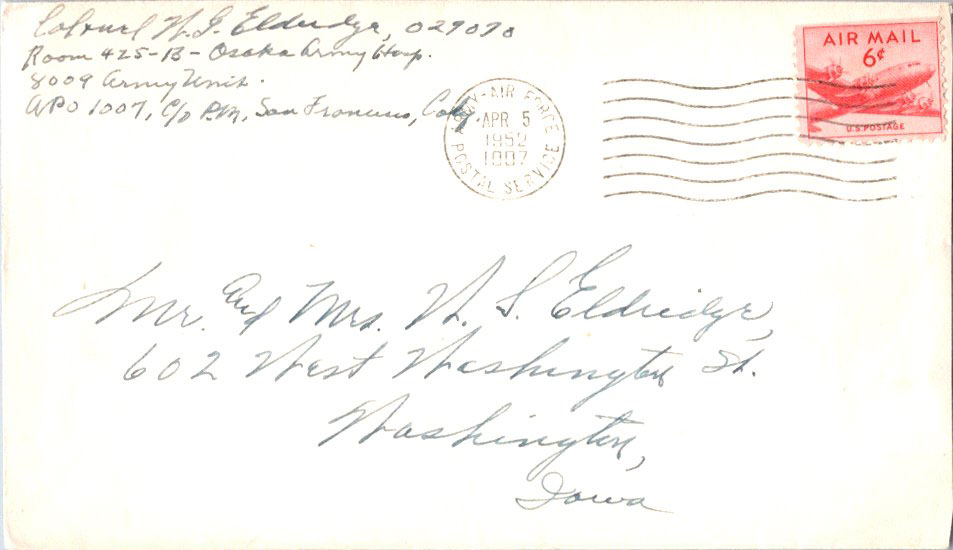 Colonel W. G. Eldridge, 029070
Room 425-B - Osaka Army Hosp.
8009 Army Unit.
APO 1007, C/o P.M., San Francisco, Calif.
ARMY-AIR FORCE
APR 5
1952
1007
POSTAL SERVICE
AIR MAIL
6¢
U.S. POSTAGE
Mr. And Mrs. W. S. Eldridge,
602 West Washington St.
Washington,
Iowa